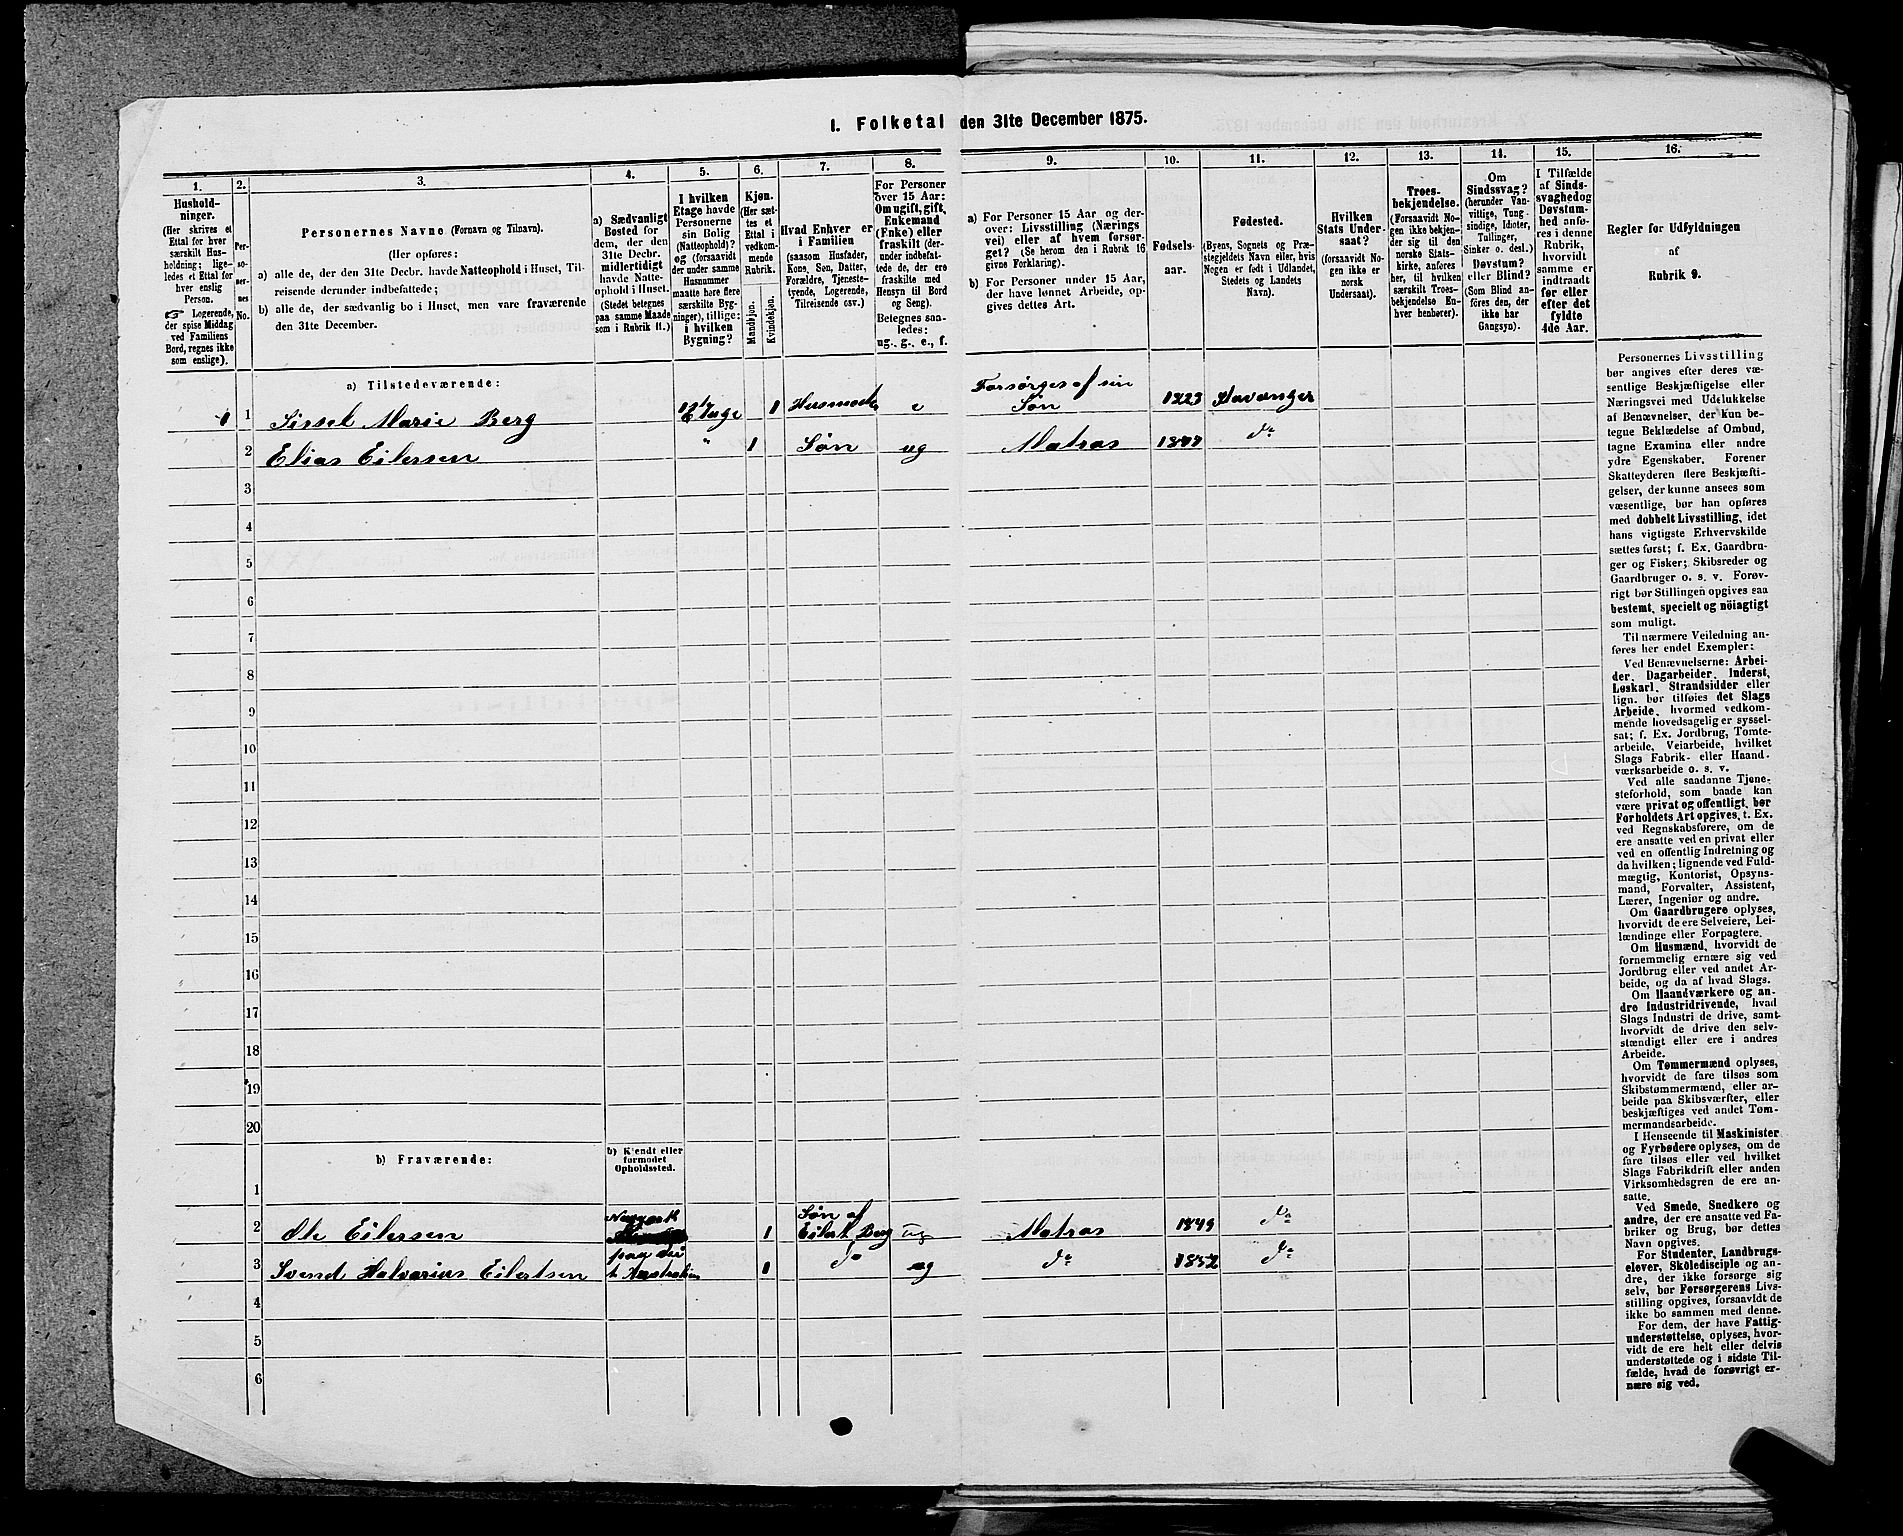 1. Folketal den 31te December 1875.
1.
2.
3.
4.
5.
6.
7.
8.
9.
10.
11.
12.
13.
14.
15.
16.
Hushold-
ninger.
(Her skrives et
Ettal for hver
særskilt Hus-
holdning; lige-
ledes et Ettal for
hver enslig
Person.
☞ Logerende,
der spise Middag
ved Familiens
Bord, regnes ikke
som enslige).
Per-
so-
ner-
nes
No.
Personernes Navne (Fornavn og Tilnavn).
(Her opføres:
a) alle de, der den 31te Decbr. havde Natteophold i Huset, Til-
reisende derunder indbefattede;
b) alle de, der sædvanlig bo i Huset, men vare fraværende
den 31te December.
a) Sædvanligt
Bosted for
dem, der den
31te Decbr.
midlertidigt
havde Natte-
ophold i Huset.
(Stedet betegnes
paa samme Maade
som i Rubrik 11.)
I hvilken
Etage havde
Personerne
sin Bolig
(Natteophold)?
og (forsaavidt
der under samme
Husnummer
maatte høre flere
særskilte Byg-
ninger), tillige:
i hvilken
Bygning?
Kjøn.
(Her sæt-
tes et
Ettal i
vedkom-
mende
Rubrik.
Mandkjøn.
Kvindekjøn.
Hvad Enhver er
i Familien
(saasom Husfader,
Kone, Søn, Datter,
Forældre, Tjeneste-
tyende, Logerende,
Tilreisende osv.)
For Personer
over 15 Aar:
Om ugift, gift,
Enkemand
(Enke) eller
fraskilt (der-
under indbefat-
tede de, der ere
fraskilte med
Hensyn til Bord
og Seng).
Betegnes saa-
ledes:
ug., g., e., f.
a) For Personer 15 Aar og der-
over: Livsstilling (Nærings
vei) eller af hvem forsør-
get? (Se herom den i Rubrik 16
givne Forklaring).
b) For Personer under 15 Aar,
der have lønnet Arbeide, op-
gives dettes Art.
Fødsels-
aar.
Fødested.
(Byens, Sognets og Præ-
stegjeldets Navn eller, hvis
Nogen er født i Udlandet,
Stedets og Landets
Navn).
Hvilken
Stats Under-
saat?
(forsaavidt No-
gen ikke er
norsk
Undersaat).
Troes-
bekjendelse.
(Forsaavidt No-
gen ikke bekjen-
der sig til den
norske Stats-
kirke, anføres
her, til hvilken
særskilt Troes-
bekjendelse En-
hver henhører).
Om
Sindssvag?
(herunder Van-
vittige, Tung-
sindige, Idioter,
Tullinger,
Sinker o. desl.)
Døvstum?
eller Blind?
(Som Blind an-
føres den, der
ikke har
Gangsyn).
I Tilfælde
af Sinds-
svaghed og
Døvstum-
hed anfø-
res i denne
Rubrik,
hvorvidt
samme er
indtraadt
før eller
efter det
fyldte
4de Aar.
Regler for Udfyldningen
af
Rubrik 9.
a) Tilstedeværende:
1 1 Sissel Marie Berg Etage 1 Husmoder e Forsørges af sin
Søn 1823 Stavanger
2 Elias Eilersen " 1 Søn ug Matros 1847 do
3
4
5
6
7
8
9
10
11
12
13
14
15
16
17
18
19
20
b) Fraværende:
b) Kjendt eller
formodet
Opholdssted.
1
2 Ole Eilersen 1 Søn af
Eilert Berg ug Matros 1849 do
3 Svend Halvarius Eilertsen
t. Australien 1 do ug do 1852 do
4
5
6
Personernes Livsstilling
bør angives efter deres væ-
sentlige Beskjæftigelse eller
Næringsvei med Udelukkelse
af Benævnelser, der kun be-
tegne Beklædelse af Ombud,
tagne Examina eller andre
ydre Egenskaber. Forener
Skatteyderen flere Beskjæfti-
gelser, der kunne ansees som
væsentlige, bør han opføres
med dobbelt Livsstilling, idet
hans vigtigste Erhvervskilde
sættes først; f. Ex. Gaardbru-
ger og Fisker; Skibsreder og
Gaardbruger o. s. v. Forøv-
rigt bør Stillingen opgives saa
bestemt, specielt og nöiagtigt
som muligt.
Til nærmere Veiledning an-
føres her endel Exempler:
Ved Benævnelserne: Arbei-
der, Dagarbeider, Inderst,
Løskarl, Strandsidder eller
lign. bør tilføies det Slags
Arbeide, hvormed vedkom-
mende hovedsagelig er syssel-
sat; f. Ex. Jordbrug, Tomte-
arbeide, Veiarbeide, hvilket
Slags Fabrik- eller Haand-
værksarbeide o. s. v.
Ved alle saadanne Tjene-
steforhold, som baade kan
være privat og offentligt, bør
Forholdets Art opgives, t. Ex.
ved Regnskabsførere, om de
ere ansatte ved en privat eller
ved en offentlig Indretning og
da hvilken; lignende ved Fuld-
mægtig, Kontorist, Opsyns-
mand, Forvalter, Assistent,
Lærer, Ingeniør og andre.
Om Gaardbrugere oplyses,
hvorvidt de ere Selveiere, Lei-
lændinge eller Forpagtere.
Om Husmænd, hvorvidt de
fornemmelig ernære sig ved
Jordbrug eller ved andet Ar-
beide, og da af hvad Slags.
Om Haandværkere og an-
dre Industridrivende, hvad
Slags Industri de drive, samt
hvorvidt de drive den selv-
stændigt eller ere i andres
Arbeide.
Om Tømmermænd oplyses,
hvorvidt de fare tilsøs som
Skibstømmermænd, eller ar-
beide paa Skibsværfter, eller
beskjæftiges ved andet Tøm-
mermandsarbeide.
I Henseende til Maskinister
og Fyrbødere oplyses, om de
fare tilsøs eller ved hvilket
Slags Fabrikdrift eller anden
Virksomhedsgren de ere an-
satte.
Ved Smede, Snedkere og
andre, der ere ansatte ved Fa-
briker og Brug, bør dettes
Navn opgives.
For Studenter, Landbrugs-
elever, Skoledisciple og an-
dre, der ikke forsørge sig
selv, bør Forsørgerens Livs-
stilling opgives, forsaavidt de
ikke bo sammen med denne.
For dem, der have Fattig-
understøttelse, oplyses, hvor-
vidt de ere helt eller delvis
understøttede og i sidste Til-
fælde, hvad de forøvrigt er-
nære sig ved.